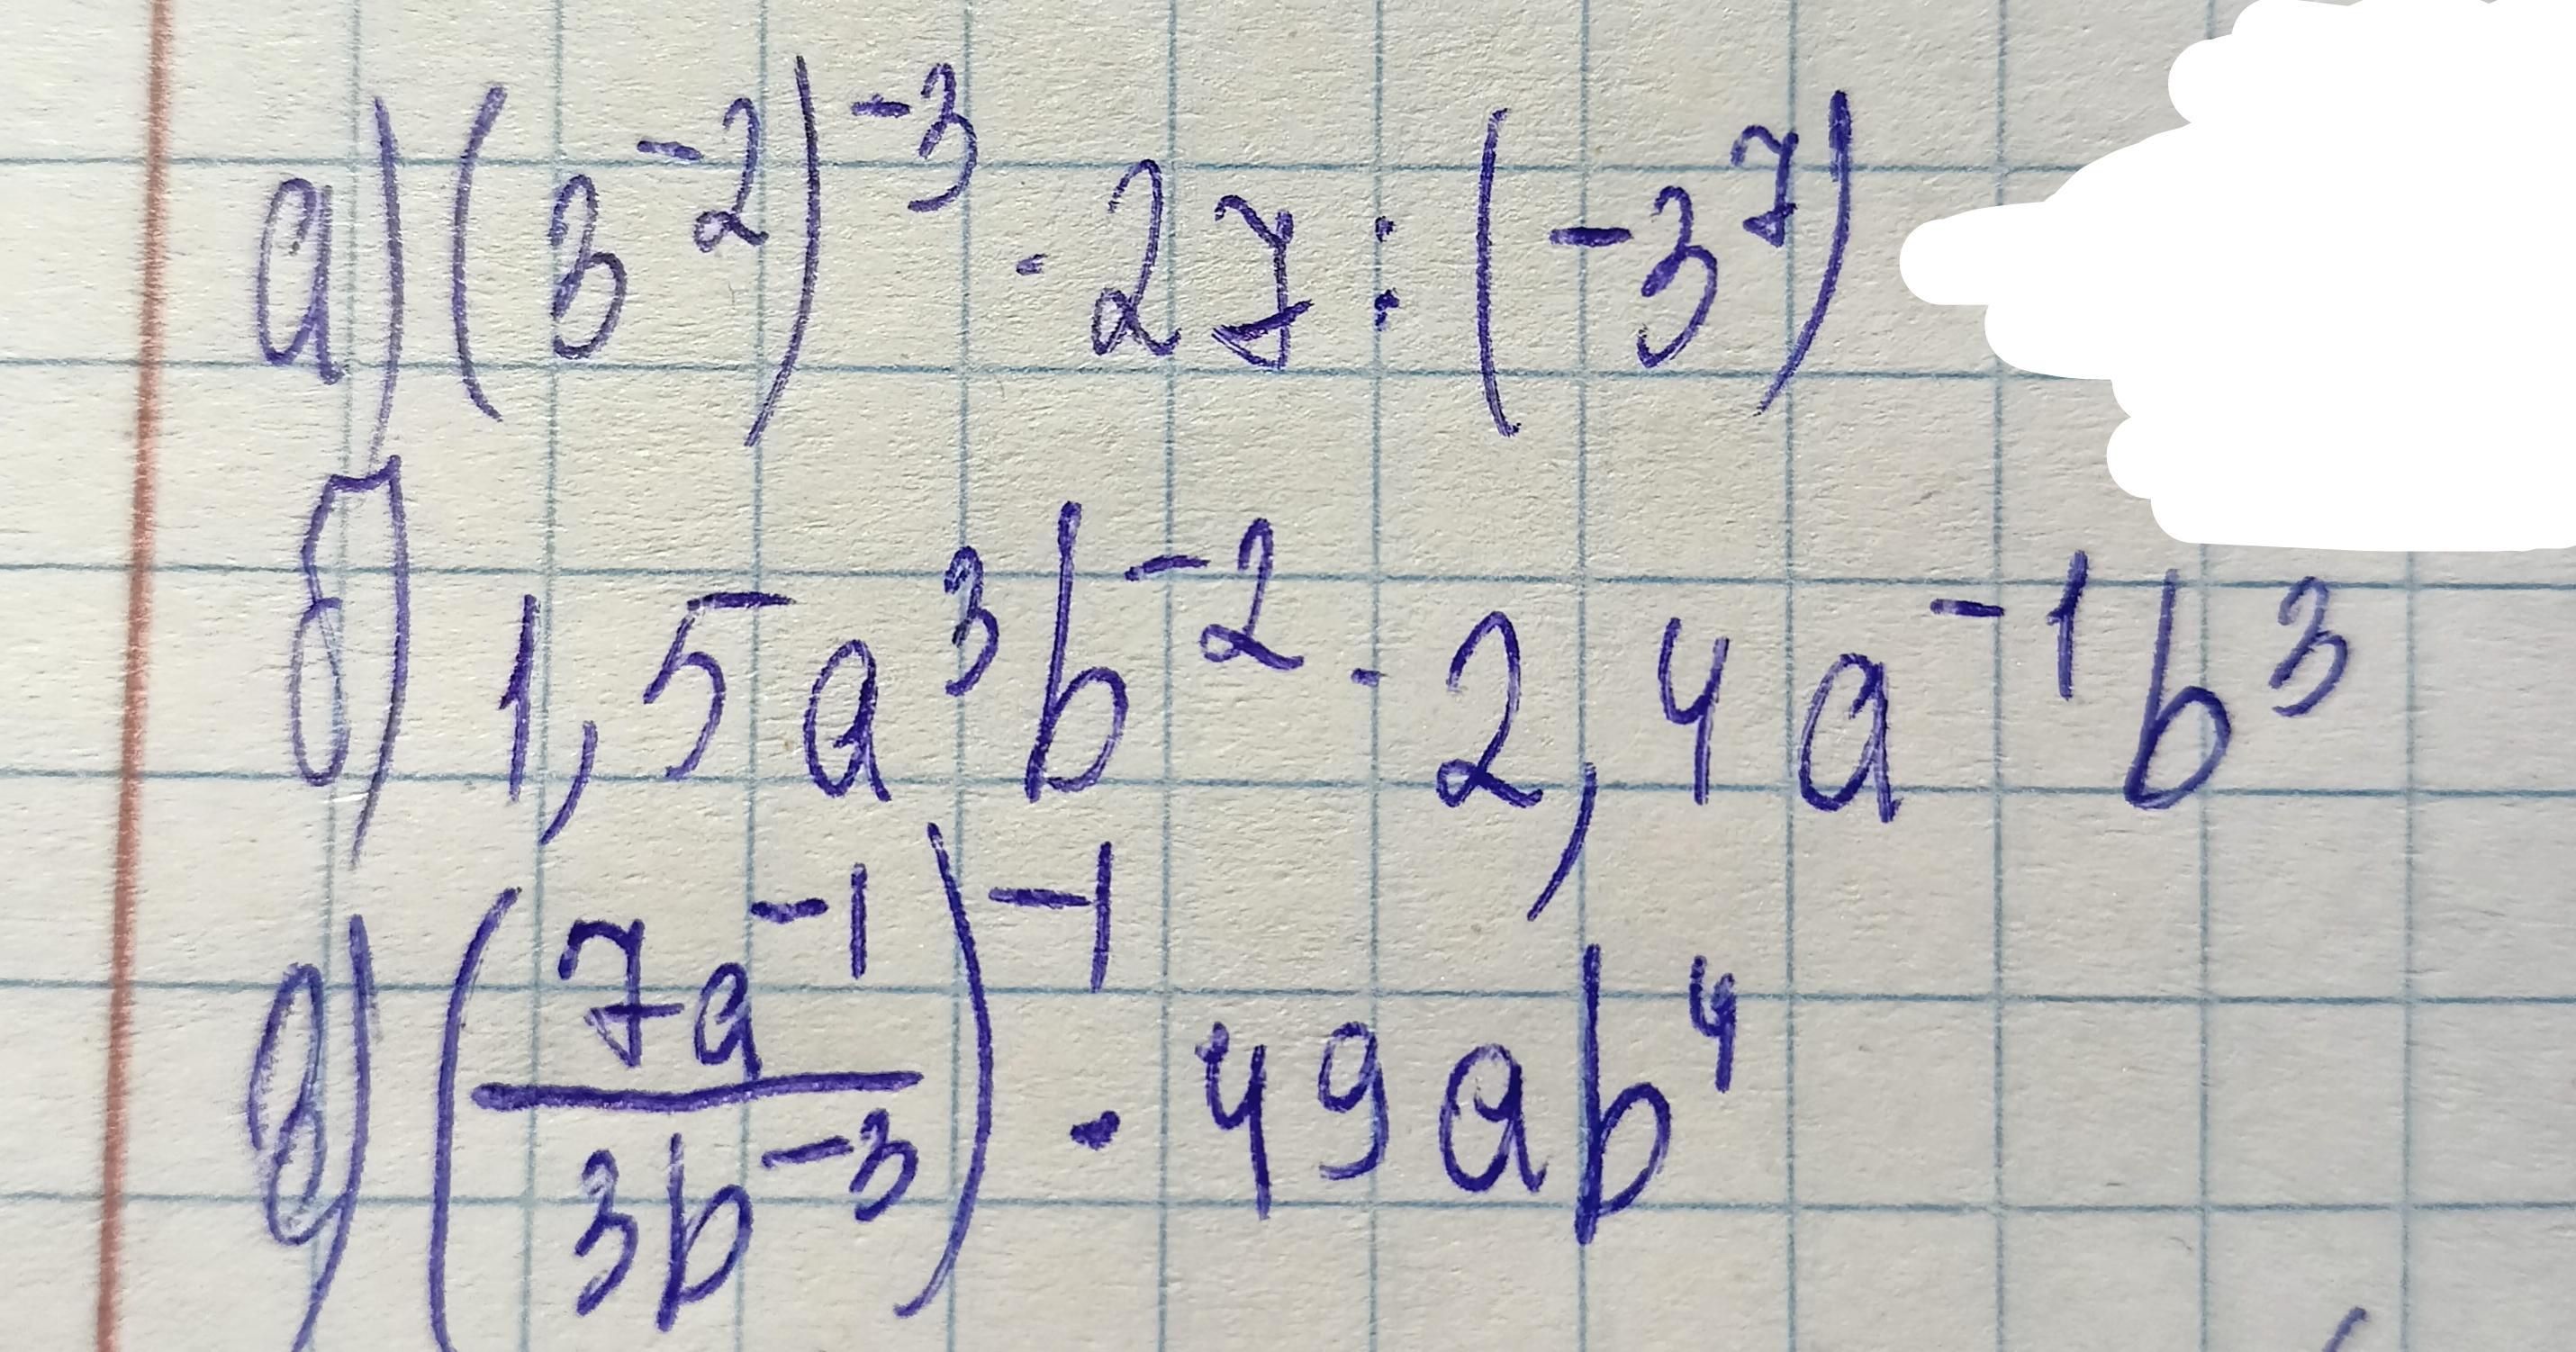 а) (3⁻²)⁻³ · 27 : (-3⁷)
б) 1,5a³b⁻² · 2,4a⁻¹b³
в) (7a⁻¹/3b⁻³)⁻¹ · 49ab⁴